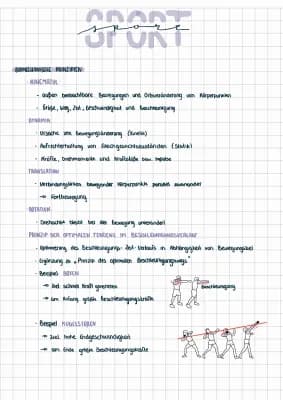 SPORT
spore
BIOMECHANISCHE PRINZIPIEN
KINEMATIK
- außen beobachtbare Bewegungen und Ortsveränderung von Körperpunkten
- Größe, Weg, Zeit, Geschwindigkeit und Beschleunigung
DYNAMIK
- Ursache von Bewegungsänderung (Kinetik)
- Aufrechterhaltung von Gleichgewichtszuständen (Statik)
- Kräfte, Drehmomente und Kraftstöße bzw. Impulse
TRANSLATION
- Verbindungslinien bewegender Körperpunkte parallel zueinander
→ Fortbewegung
ROTATION
- Drehachse bleibt bei der Bewegung unverändert
PRINZIP DER OPTIMALEN TENDENZ IM BESCHLEUNIGUNGSVERLAUF
- Optimierung des Beschleunigungs-Zeit-Verlaufs in Abhängigkeit von Bewegungsziel
- Ergänzung zu „Prinzip des optimalen Beschleunigungswegs"
- Beispiel BOXEN
→ Ziel: schnell Kraft generieren
Beschleunigung
→ am Anfang größte Beschleunigungskräfte
- Beispiel KUGELSTOßEN
→ Ziel: hohe Endgeschwindigkeit
→ am Ende größte Beschleunigungskräfte